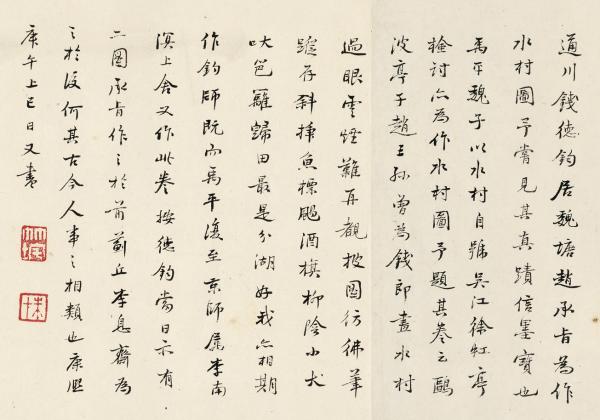 通川錢德鈞居魏塘趙承旨為作
水村圖予嘗見其真蹟信墨寶也
禹平魏子以水村自號吳江徐虹亭
檢討亦為作水村圖予題其卷云鷗
波亭子趙王孫曾為錢郎畫水村
過眼雲煙難再覩披圖彷彿筆
蹤存斜插魚標颺酒旗柳陰小犬
吠笆籬歸田最是分湖好我亦相期
作釣師既而禹平復至京師屬李南
溟上舍又作此卷按德鈞當日亦有
二圖承旨作之於前薊丘李息齋為
之於後何其古今人事之相類也康熙
庚午上巳日又書
竹垞